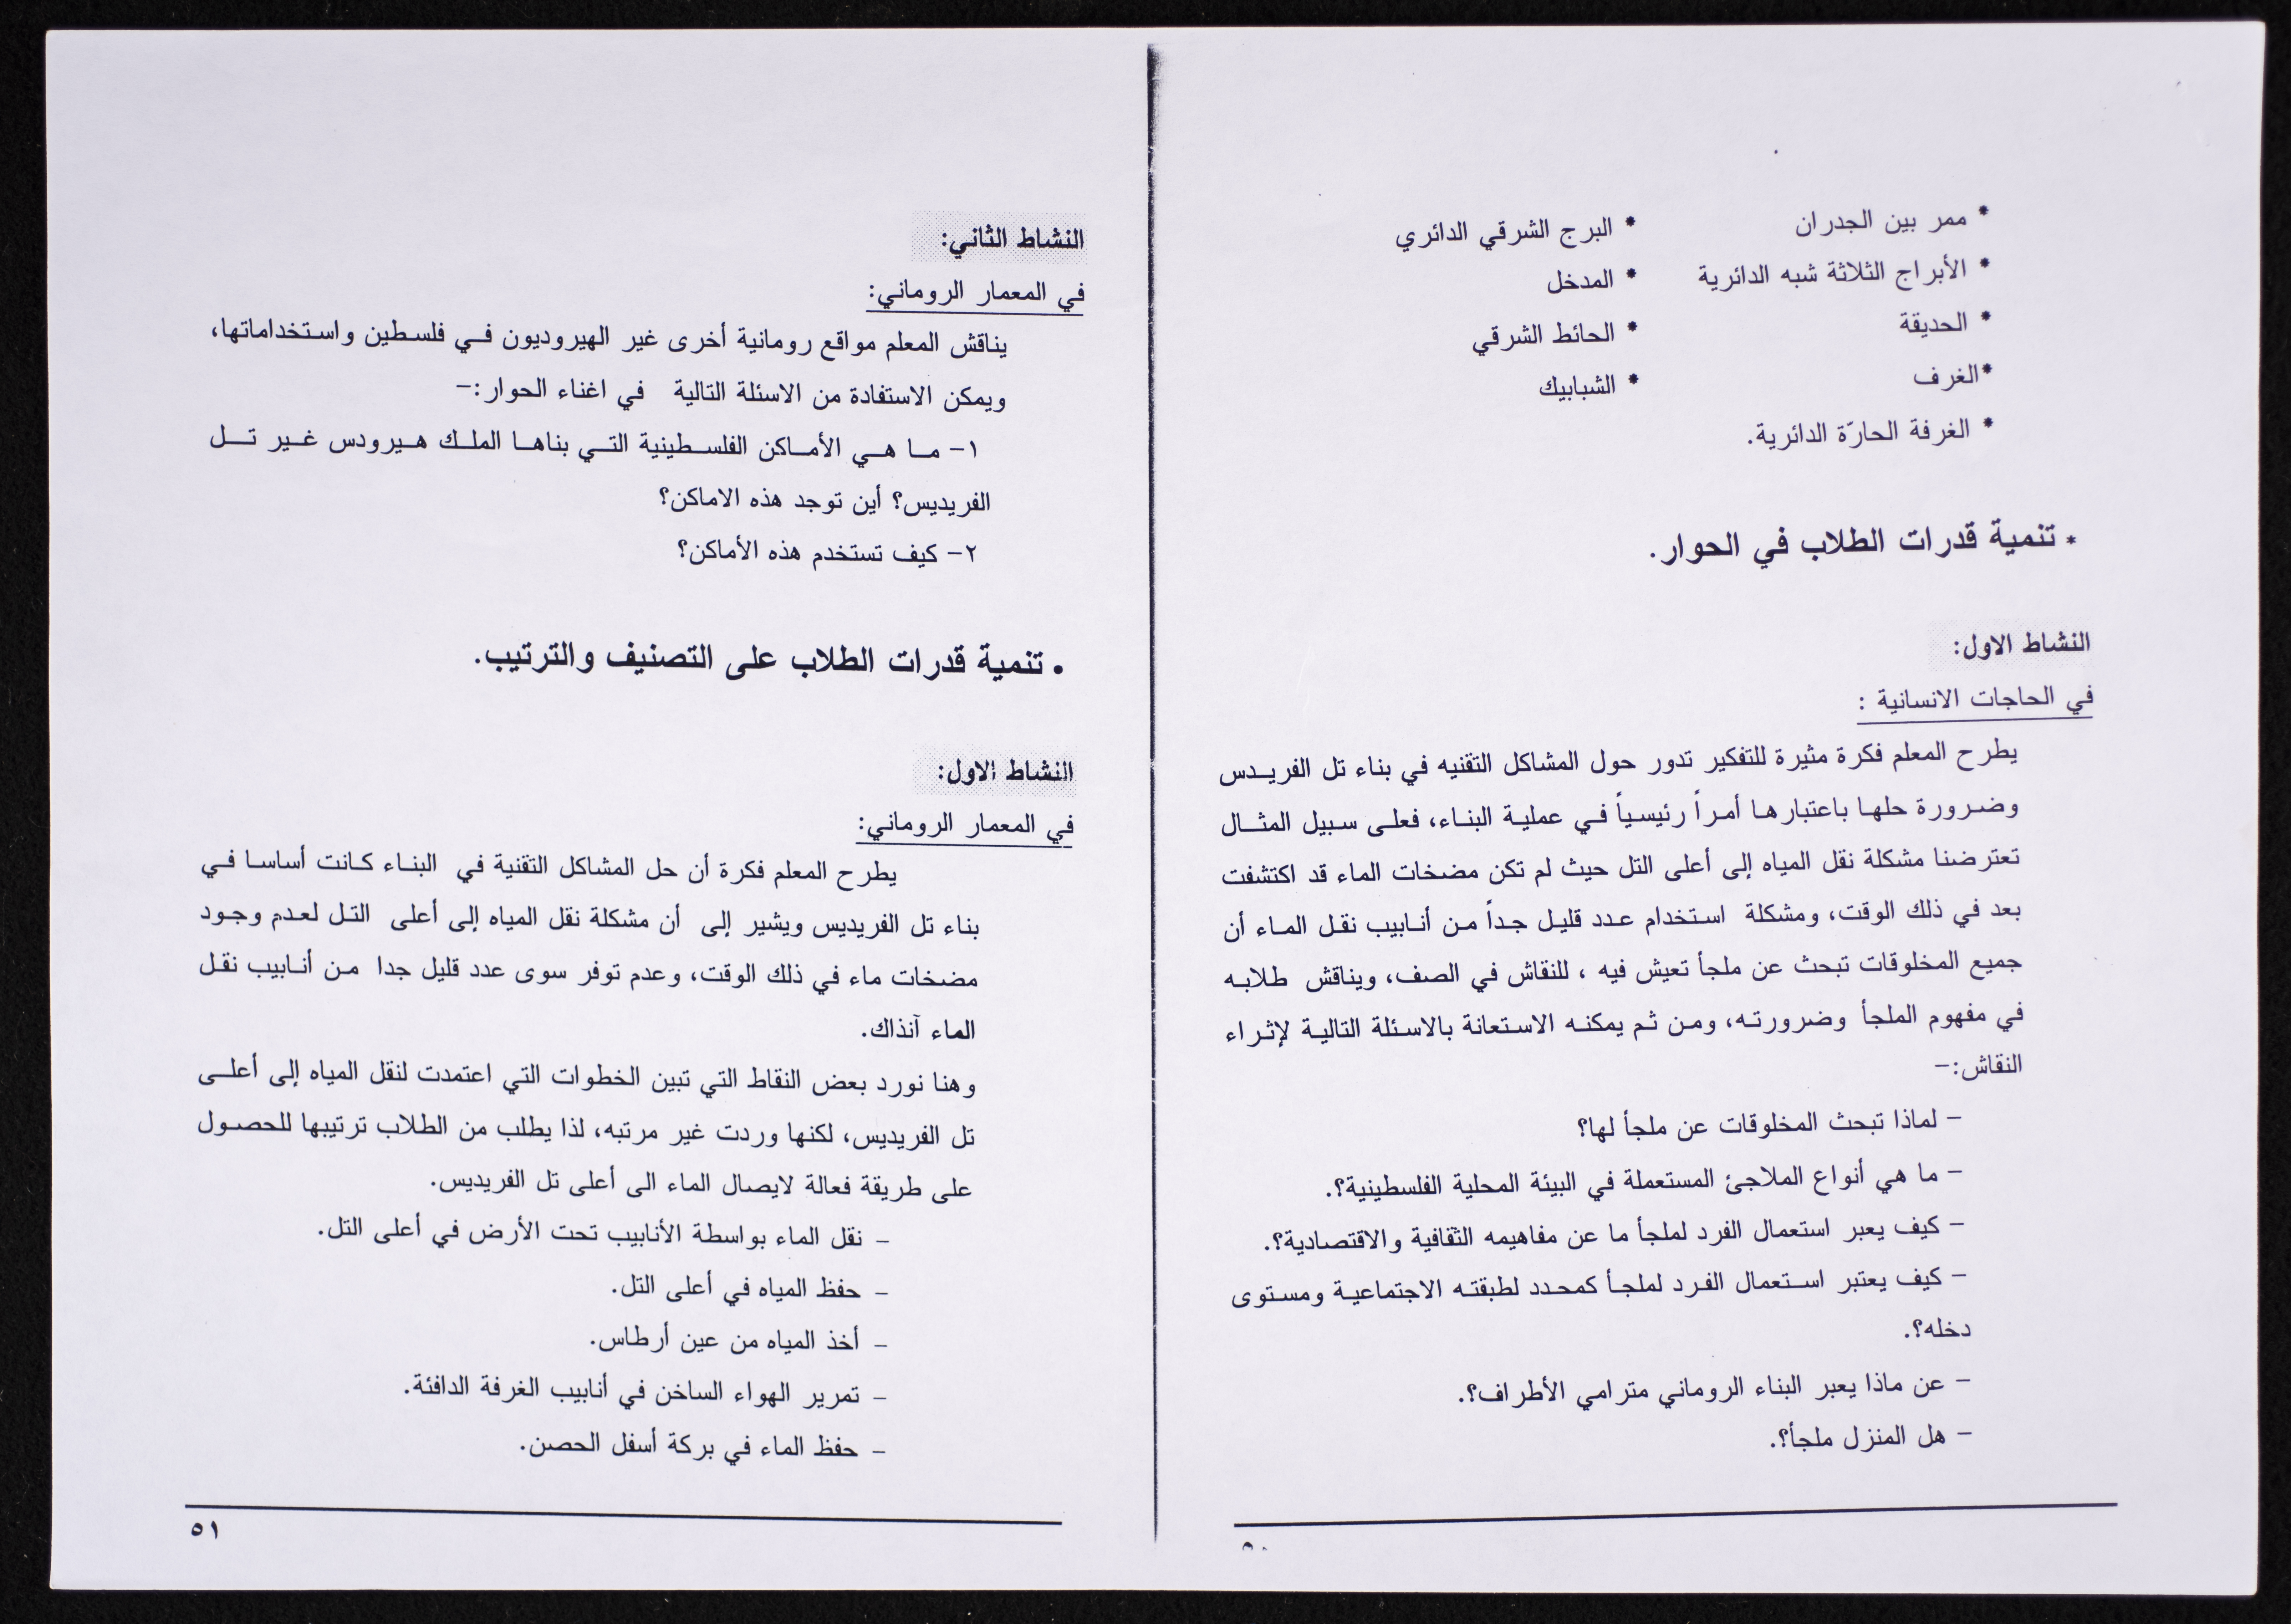 * ممر بين الجدران * البرج الشرقي الدائري
* الأبراج الثلاثة شبه الدائرية * المدخل
* الحديقة * الحائط الشرقي
*الغرف * الشبابيك
* الغرفة الحارّة الدائرية.
* تنمية قدرات الطلاب في الحوار.
النشاط الاول:
في الحاجات الانسانية :
يطرح المعلم فكرة مثيرة للتفكير تدور حول المشاكل التقنيه في بناء تل الفريدس
وضرورة حلها باعتبارها أمراً رئيسياً في عملية البناء، فعلى سبيل المثال
تعترضنا مشكلة نقل المياه إلى أعلى التل حيث لم تكن مضخات الماء قد اكتشفت
بعد في ذلك الوقت، ومشكلة استخدام عدد قليل جداً من أنابيب نقل الماء أن
جميع المخلوقات تبحث عن ملجأ تعيش فيه ، للنقاش في الصف، ويناقش طلابه
في مفهوم الملجأ وضرورته، ومن ثم يمكنه الاستعانة بالاسئلة التالية لإثراء
النقاش:-
- لماذا تبحث المخلوقات عن ملجأ لها؟
- ما هي أنواع الملاجئ المستعملة في البيئة المحلية الفلسطينية؟.
- كيف يعبر استعمال الفرد لملجأ ما عن مفاهيمه الثقافية والاقتصادية؟.
- كيف يعتبر استعمال الفرد لملجأ كمحدد لطبقته الاجتماعية ومستوى
دخله؟.
- عن ماذا يعبر البناء الروماني مترامي الأطراف؟.
- هل المنزل ملجأ؟.
٥٠
النشاط الثاني:
في المعمار الروماني:
يناقش المعلم مواقع رومانية أخرى غير الهيروديون في فلسطين واستخداماتها،
ويمكن الاستفادة من الاسئلة التالية في اغناء الحوار:-
١- ما هي الأماكن الفلسطينية التي بناها الملك هيرودس غير تل
الفريديس؟ أين توجد هذه الاماكن؟
٢- كيف تستخدم هذه الأماكن؟
• تنمية قدرات الطلاب على التصنيف والترتيب.
النشاط الاول:
في المعمار الروماني:
يطرح المعلم فكرة أن حل المشاكل التقنية في البناء كانت أساسا في
بناء تل الفريديس ويشير إلى أن مشكلة نقل المياه إلى أعلى التل لعدم وجود
مضخات ماء في ذلك الوقت، وعدم توفر سوى عدد قليل جدا من أنابيب نقل
الماء آنذاك.
وهنا نورد بعض النقاط التي تبين الخطوات التي اعتمدت لنقل المياه إلى أعلى
تل الفريديس، لكنها وردت غير مرتبه، لذا يطلب من الطلاب ترتيبها للحصول
على طريقة فعالة لايصال الماء الى أعلى تل الفريديس.
- نقل الماء بواسطة الأنابيب تحت الأرض في أعلى التل.
- حفظ المياه في أعلى التل.
- أخذ المياه من عين أرطاس.
- تمرير الهواء الساخن في أنابيب الغرفة الدافئة.
- حفظ الماء في بركة أسفل الحصن.
٥١